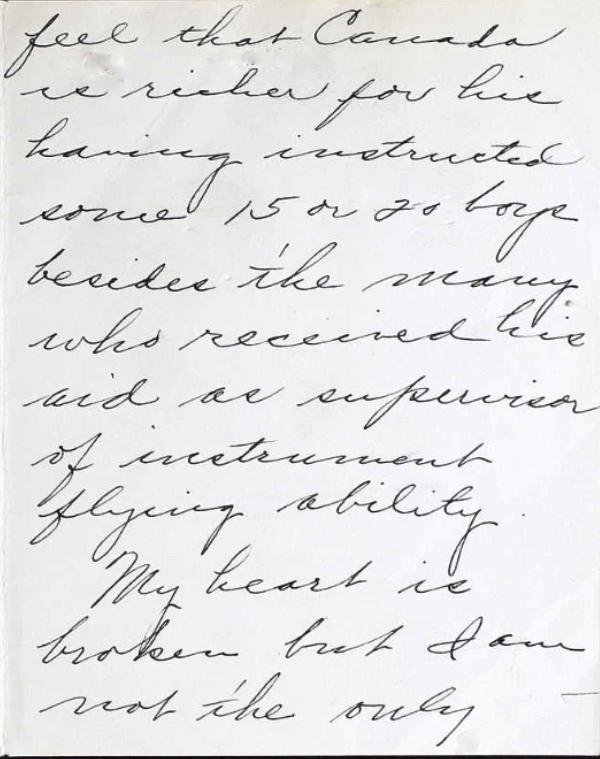 feel that Canada
is richer for his
having instructed
some 15 or 20 boys
besides the many
who received his
aid as supervisor
of instrument
flying ability.
My heart is
broken but I am
not the only